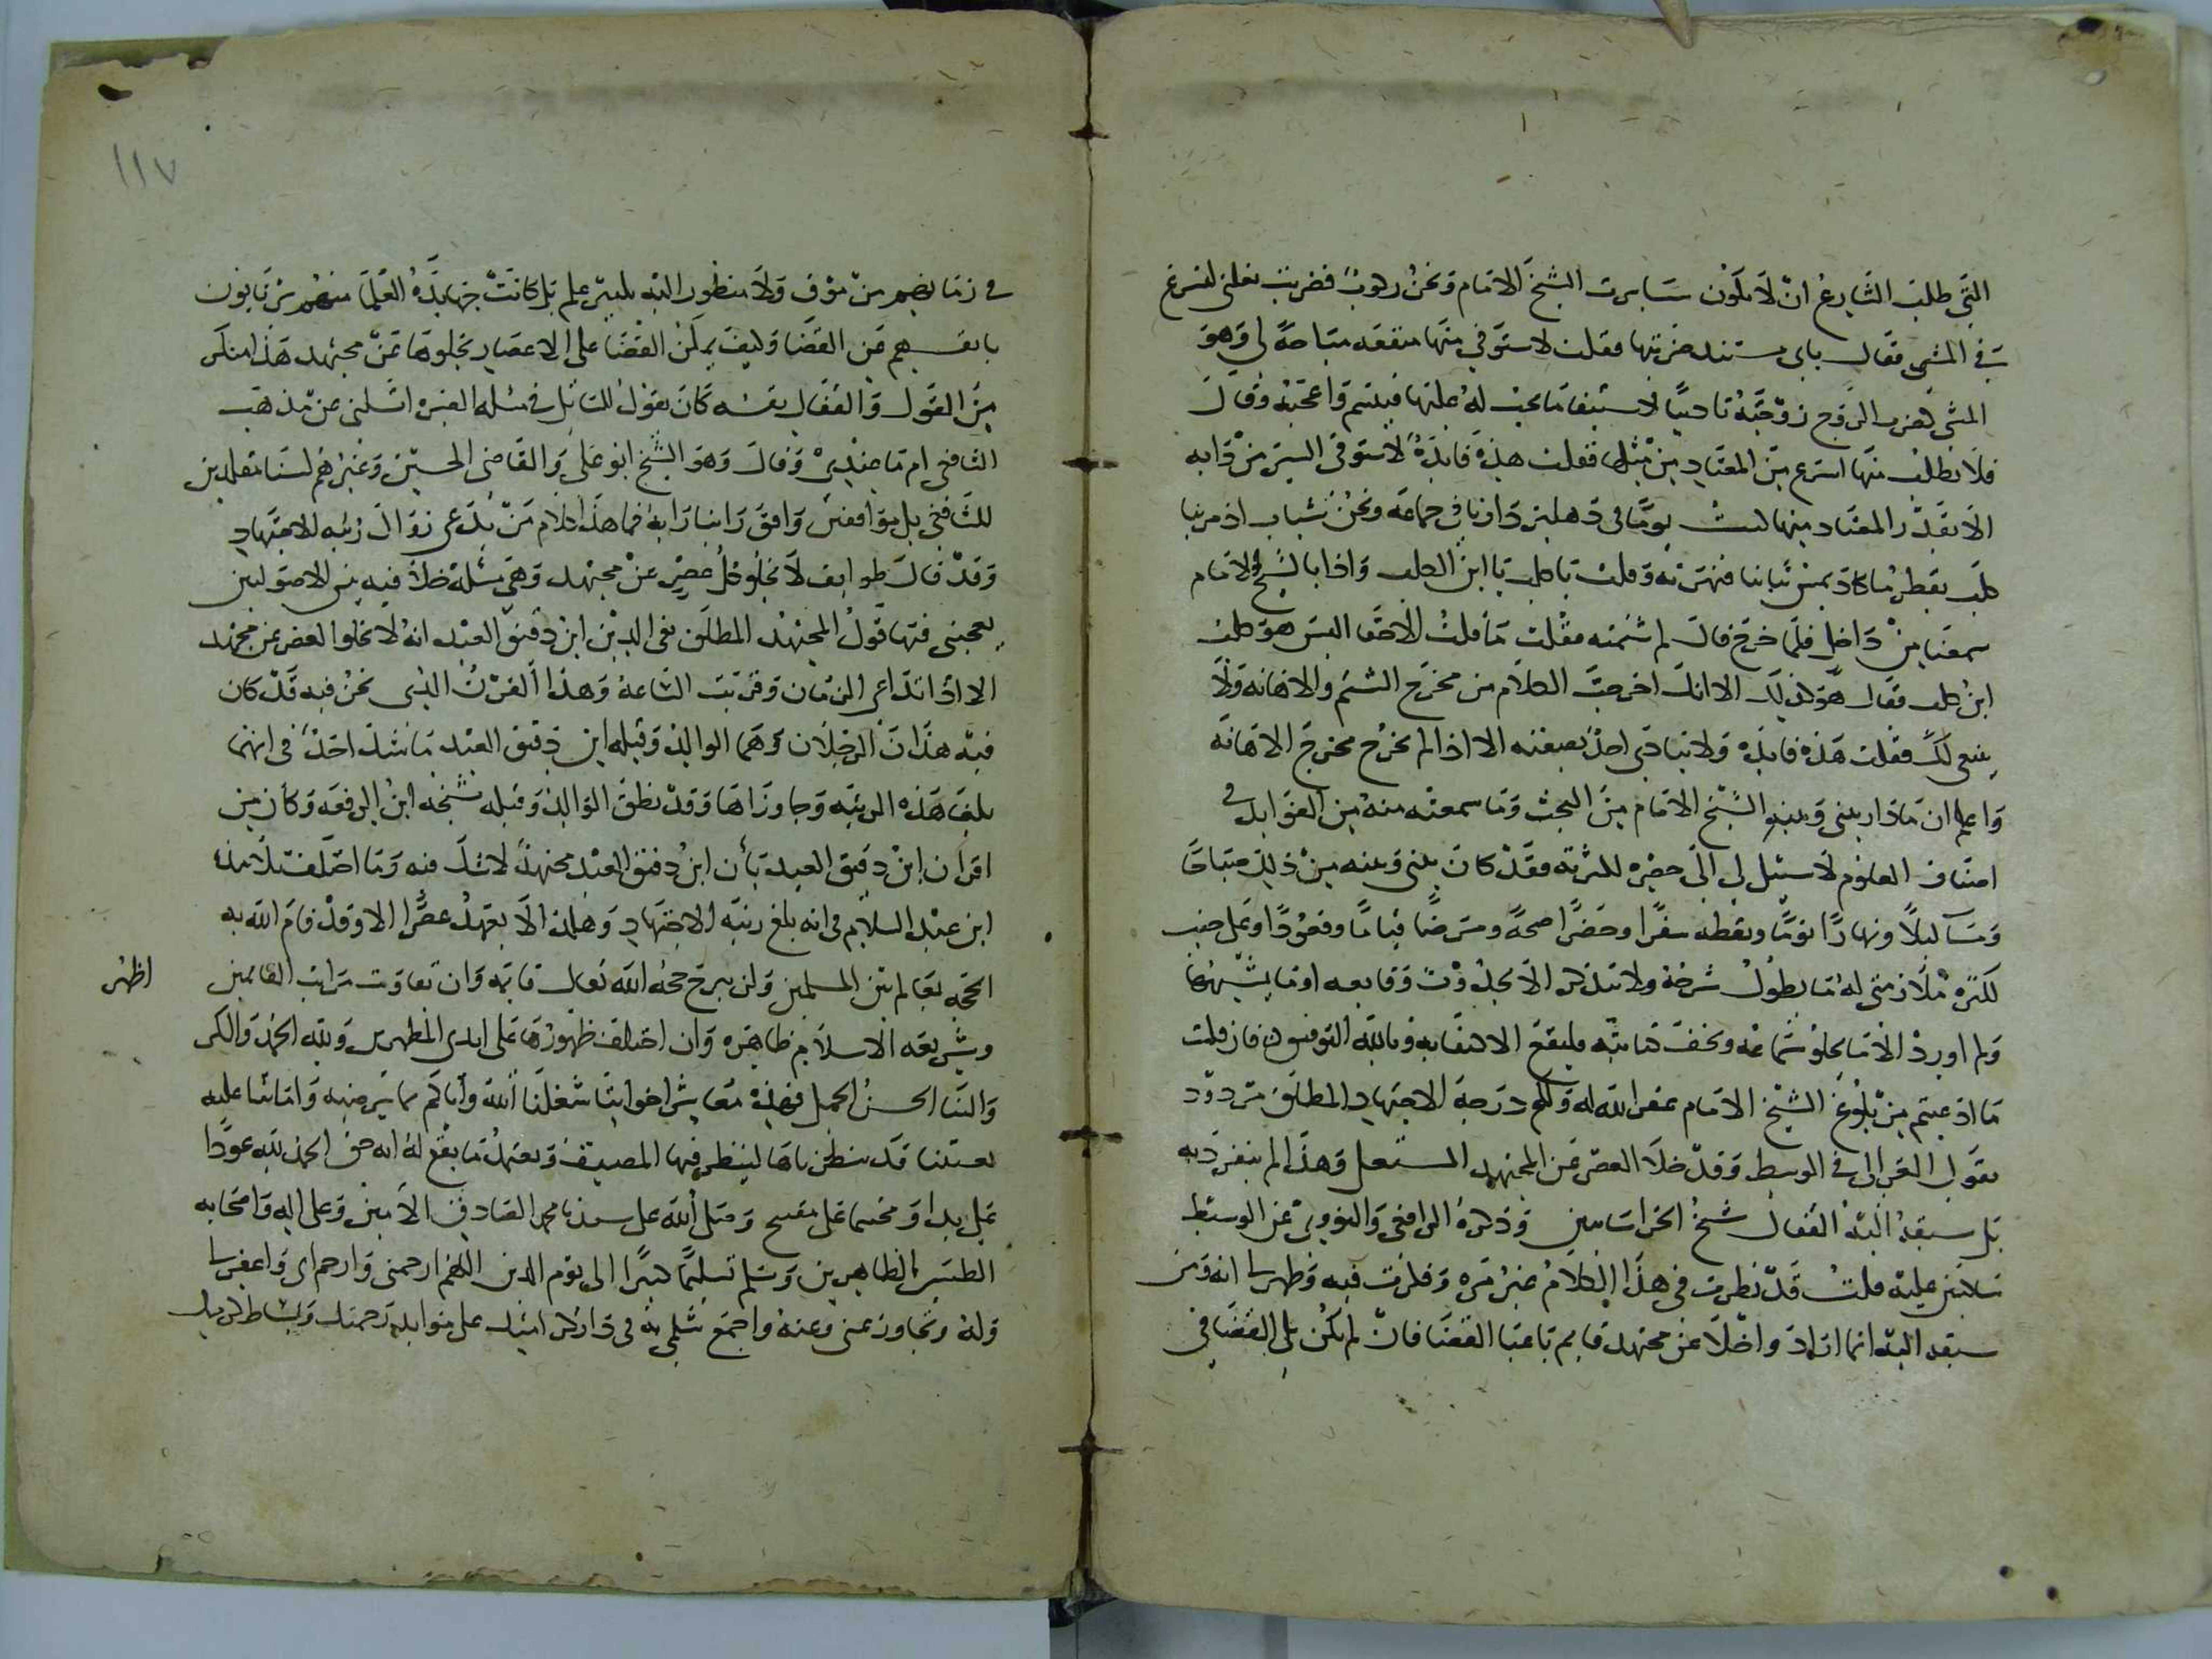 التي طلب الشارع ان لا يكون سايرت الشيخ الامام ونحن ركوب فضربت بغلتي لتسرع
في المشي فقال باي مستند ضربتها فقلت لاستوفي منها منفعه مباحة لي وهو
المشي كضرب الزوج زوجته تاديبا لاستيفا ما يجب له عليها فتبسم واعجبه وقال
فلا تطلب منها اسرع من المعتاد من مثلها فقلت هذه فايدة لا تستوفى السير من دابه
الا بقدر المعتاد منها كنت يوما في دهليز دارنا في جماعه ونحن شباب اذ مر بنا
كلب يقطر ماء كاد يمس ثيابنا فنهرته وقلت يا كلب يا ابن الكلب واذا بالشيخ الامام
سمعنا من داخل فلما خرج قال لم شتمته فقلت ما قلت الا حقا اليس هو كلب
ابن كلب فقال هو كذلك الا انك اخرجت الكلام من مخرج الشتم والاهانه ولا
ينبغي لك فقلت هذه فايده ولا ينادى احد بصفته الا اذا لم يخرج مخرج الاهانه
واعلم ان ما دار بيني وبين الشيخ الامام من البحث وما سمعته منه من الفوايد في
اصناف العلوم لا سبيل لي الى حصره لكثرته فقد كان بيني وبينه من ذلك صباحا
ومساء ليلا ونهارا نوما ويقظه سفرا وحضرا صحة ومرضا قياما وقعودا وعلى جنب
لكثره ملازمتي له ما يطول شرحه ولا يتذكر الا بحدوث وقايعه او ما يشبهها
ولم اورد الا ما يحلو سماعه ويخف كتابته فليقع الاكتفا به وبالله التوفيق فان قلت
ما ادعيتم من بلوغ الشيخ الامام غفر الله له ولكم درجة الاجتهاد المطلق مردود
بقول الغزالي في الوسيط وقد خلا العصر عن المجتهد المستقل وهذا لم ينفرد به
بل سبقه اليه القفال شيخ الخراسانيين وذكره الرافعي والنووي عن الوسيط
ساكتين عليه قلت قد نظرت في هذا الكلام غير مره وفكرت فيه وظهر لنا انه ومن
سبقه اليه انما اراد واخلا عن مجتهد قايم باعبا القضا فان لم يكن يلي القضا في
في زمانهم من موق ولا منظور اليه بكثير علم بل كانت جهابذة العلما منهم من يابون
بانفسهم عن القضا وكيف يمكن القضا على الاعصار بخلوها عن مجتهد هذا منكر
من القول والقفال نفسه كان يقول للسائل في مسله الصبره اتسلني عن مذهب
الشافعي ام ما عندي وقال وهو الشيخ ابو علي والقاضي الحسين وغيرهم لسنا مقلدين
للشافعي بل موافقين وافق راينا رايه فما هذا كلام من يدعي زوال رتبه الاجتهاد
وقد قال طوايف لا يخلو كل عصر عن مجتهد وهي مسئلة خلافيه بين الاصوليين
يعجبني فيها قول المجتهد المطلق تقي الدين ابن دقيق العيد انه لا يخلو العصر عن مجتهد
الا اذا تداعى الزمان وقربت الساعة وهذا القرن الذي نحن فيه قد كان
فيه هذان الرجلان وهما الوالد وقبله ابن دقيق العيد ما شك احد في انهما
بلغا هذه الرتبه وجاوزاها وقد نطق الوالد وقبله شيخه ابن الرفعه وكان من
اقران ابن دقيق العيد بأن ابن دقيق العيد مجتهد لا شك فيه وما اختلف تلامذة
ابن عبد السلام في انه بلغ رتبه الاجتهاد وهكذا لا يعهد عصر الا وقد قام الله به
الحجه بعالم بين المسلمين ولن يبرح حجه الله تعالى قايمه وان تفاوت مراتب القايمين اظهر
وشريعه الاسلام ظاهره وان اختلف ظهورها على ايدي المظهرين ولله الحمد والكر
والثنا الحسن الجميل فهذه معاشر اخواننا شغلنا الله واياكم بما يرضيه واماتنا عليه
قد سطرناها لينظر فيها المصنف ويعتمد ما يقع له انه حق الحمد لله عودا
على بدا ومختما على مفتتح وصلى الله على سيدنا محمد الصادق الامين وعلى اله واصحابه
الطيبين الطاهرين وسلم تسليما كثيرا الى يوم الدين اللهم ارحمني وارحم ابي واغفر لنا
وله وتجاوز عني وعنه واجمع شملي به في دار كرامتك على موايد رحمتك وبساط